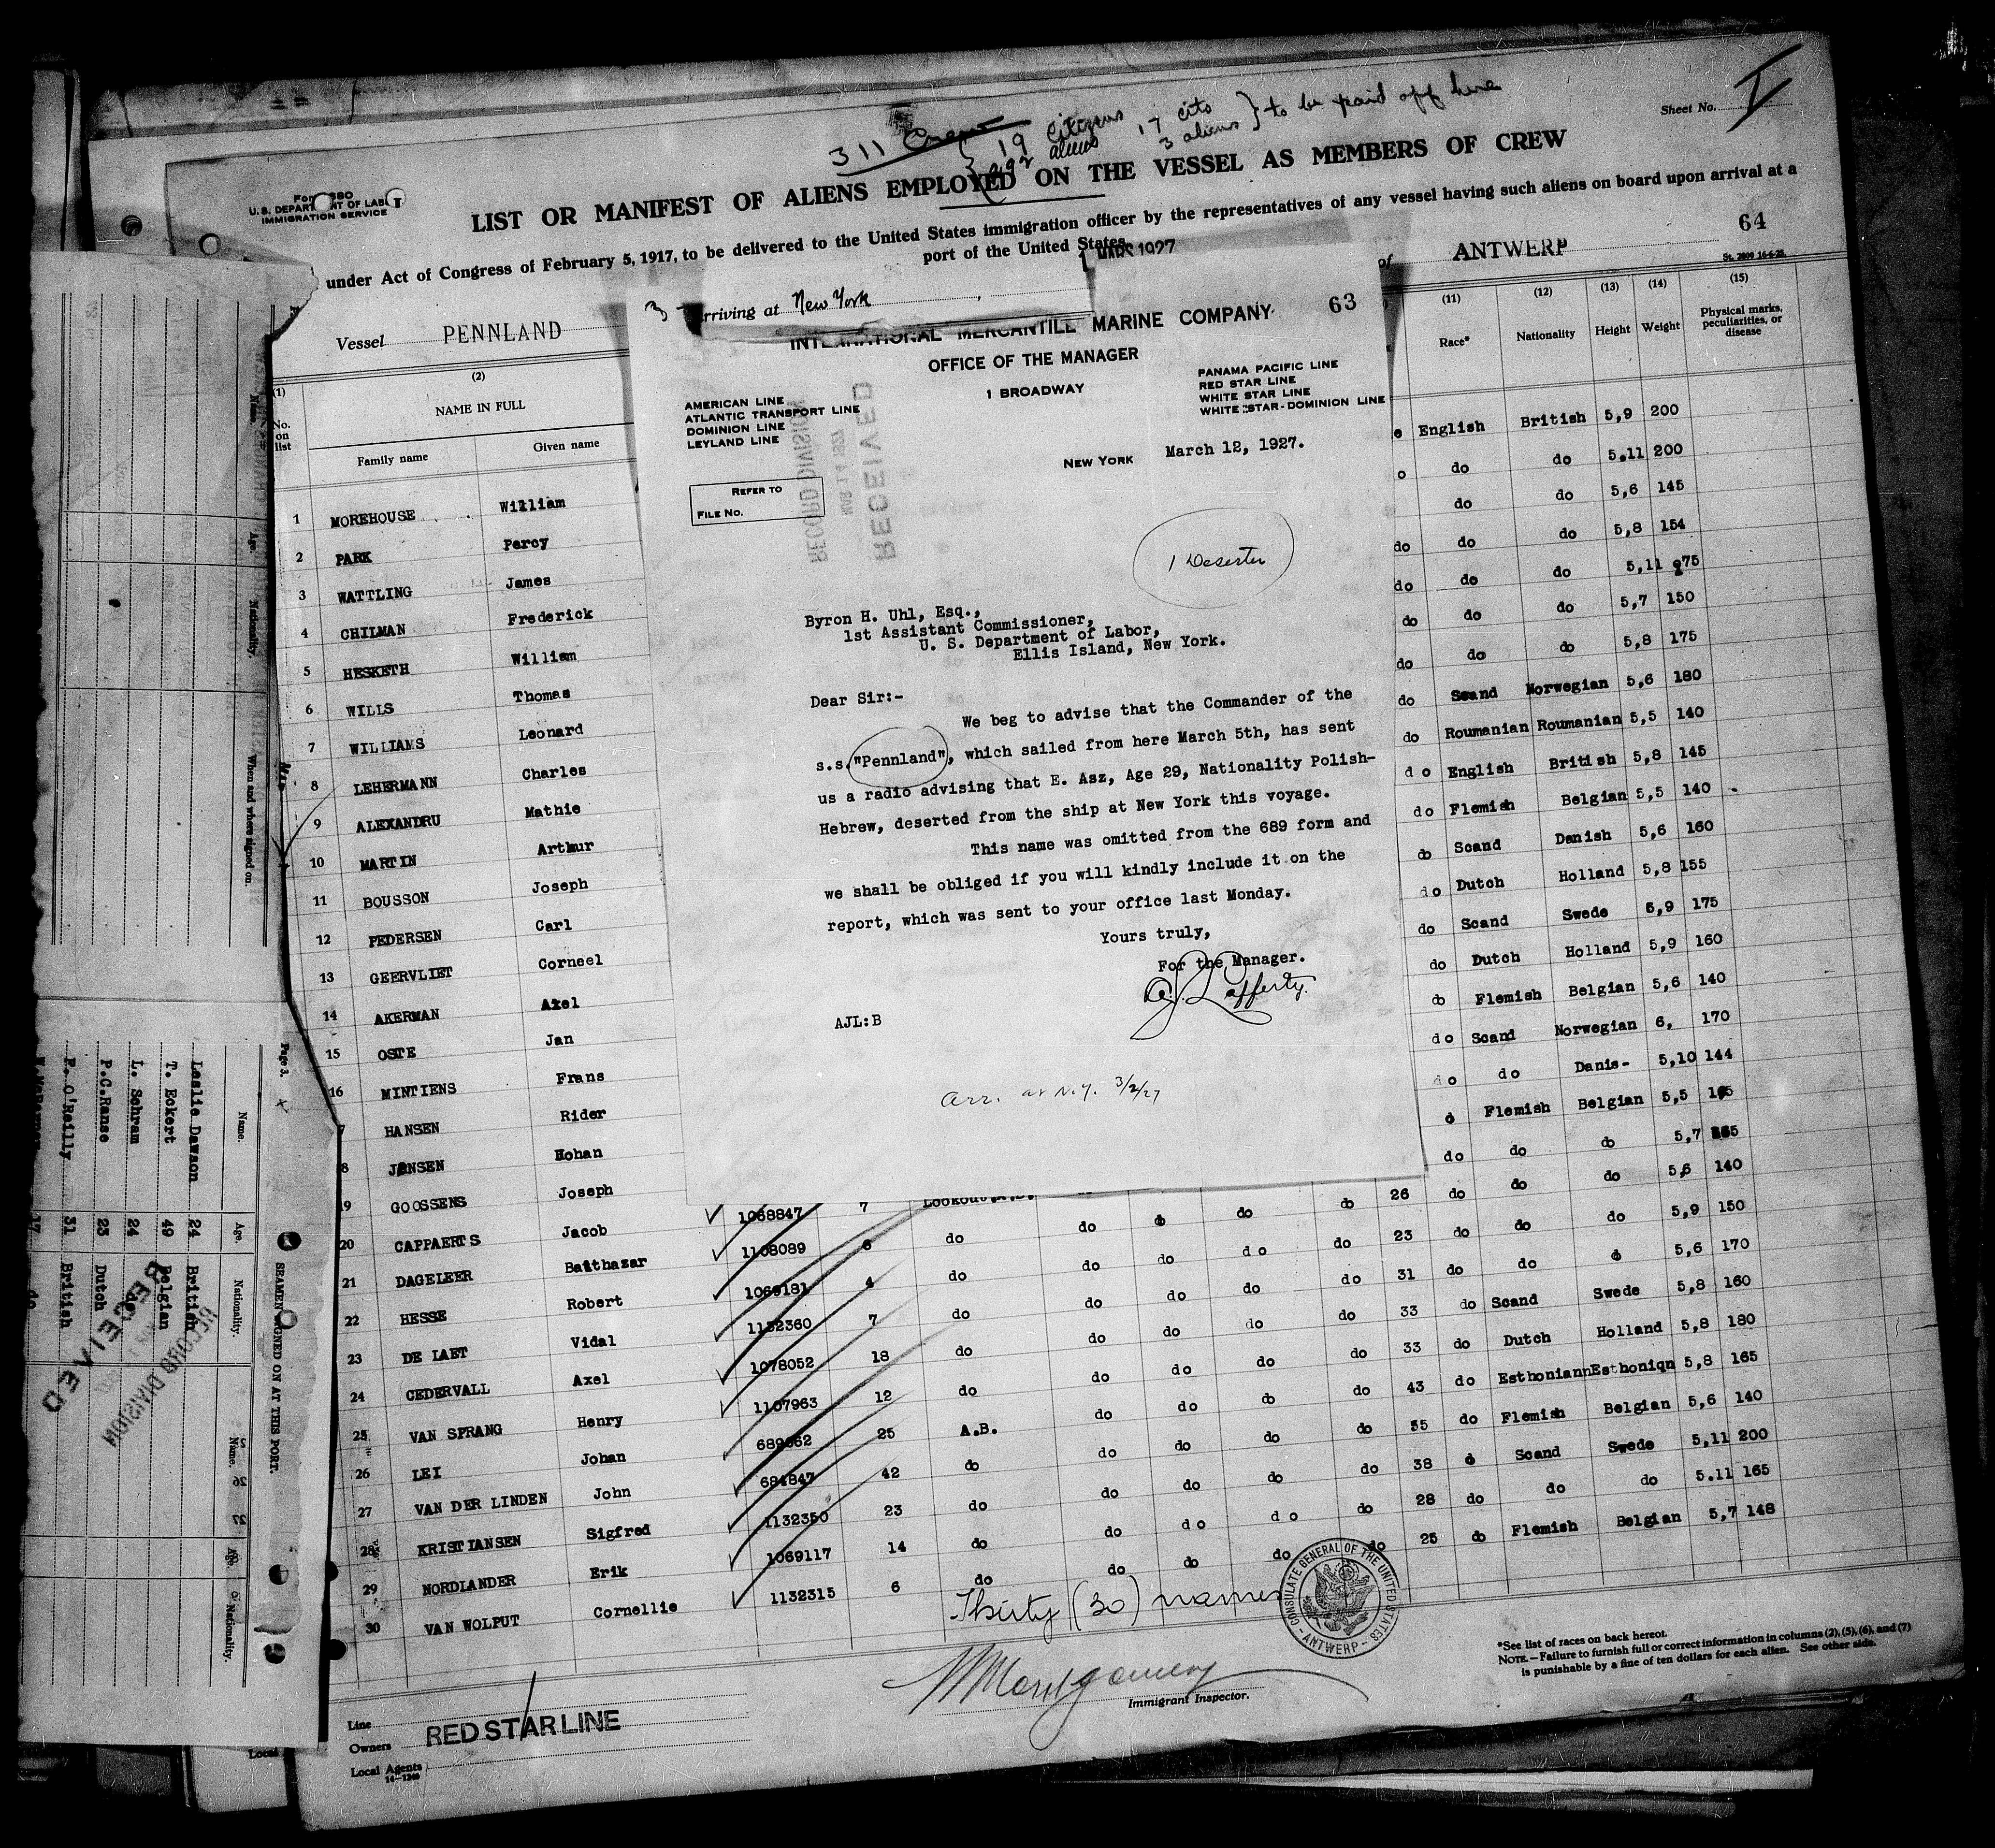 311 Crew
19 citizens
292 aliens
17 cits
3 aliens } to be paid off here
Sheet No. I
U.S. DEPARTMENT OF LABOR
IMMIGRATION SERVICE
LIST OR MANIFEST OF ALIENS EMPLOYED ON THE VESSEL AS MEMBERS OF CREW
under Act of Congress of February 5, 1917, to be delivered to the United States immigration officer by the representatives of any vessel having such aliens on board upon arrival at a
port of the United States
64
Vessel PENNLAND
arriving at New York
1927
of ANTWERP
(1) (2) (11) (12) (13) (14) (15)
No. on list
NAME IN FULL
Family name Given name
Race* Nationality Height Weight Physical marks, peculiarities, or disease
INTERNATIONAL MERCANTILE MARINE COMPANY
63
OFFICE OF THE MANAGER
1 BROADWAY
AMERICAN LINE
ATLANTIC TRANSPORT LINE
DOMINION LINE
LEYLAND LINE
PANAMA PACIFIC LINE
RED STAR LINE
WHITE STAR LINE
WHITE STAR-DOMINION LINE
NEW YORK March 12, 1927.
REFER TO
FILE NO.
RECEIVED
MAR 14 1927
RECORD DIVISION
1 Deserter
Byron H. Uhl, Esq.,
1st Assistant Commissioner,
U. S. Department of Labor,
Ellis Island, New York.
Dear Sir:-
We beg to advise that the Commander of the
s.s."Pennland", which sailed from here March 5th, has sent
us a radio advising that E. Asz, Age 29, Nationality Polish-
Hebrew, deserted from the ship at New York this voyage.
This name was omitted from the 689 form and
we shall be obliged if you will kindly include it on the
report, which was sent to your office last Monday.
Yours truly,
For the Manager.
A.J. Lafferty.
AJL:B
Arr. at N.Y. 3/2/27
1 MOREHOUSE William English British 5,9 200
2 PARK Percy do do 5.11 200
3 WATTLING James do do 5,6 145
4 CHILMAN Frederick do do do 5,8 154
5 HESKETH William do do do 5,11 75
6 WILLS Thomas do do do 5,7 150
7 WILLIAMS Leonard do do do 5,8 175
8 LEHERMANN Charles do Scand Norwegian 5,6 180
9 ALEXANDRU Mathie do Roumanian Roumanian 5,5 140
10 MARTIN Arthur do English British 5,8 145
11 BOUSSON Joseph do Flemish Belgian 5,5 140
12 PEDERSEN Carl do Scand Danish 5,6 160
13 GEERVLIET Corneel do Dutch Holland 5,8 155
14 AKERMAN Axel do Scand Swede 5,9 175
15 OSTE Jan do Dutch Holland 5,9 160
16 MINTIENS Frans do Flemish Belgian 5,6 140
7 HANSEN Rider do Scand Norwegian 6, 170
8 JENSEN Hohan do do Danis- 5,10 144
19 GOOSSENS Joseph Flemish Belgian 5,5
20 CAPPAERTS Jacob 1068847 7 Lookout do do do do 26 do do do 5,7
21 DAGELEER Balthazar 1108089 6 do do do do do 23 do do do 5,6 140
22 HESSE Robert 1069181 4 do do do do do 31 do do do 5,9 150
23 DE LAET Vidal 1132360 7 do do do do do 33 do do do 5,6 170
24 CEDERVALL Axel 1078052 18 do do do do do 33 do Scand Swede 5,8 160
25 VAN SPRANG Henry 1107963 12 do do do do do 43 do Dutch Holland 5,8 180
26 LEI Johan 689662 25 A.B. do do do do 55 do Esthoniann Esthoniqn 5,8 165
27 VAN DER LINDEN John 684847 42 do do do do do 38 do Flemish Belgian 5,6 140
28 KRISTIANSEN Sigfred 1132350 23 do do do do do 28 do Scand Swede 5,11 200
29 NORDLANDER Erik 1069117 14 do do do do do 25 do do do 5.11 165
30 VAN WOLPUT Cornellie 1132315 6 do do do do do Flemish Belgian 5,7 148
Thirty (30) names
CONSULATE GENERAL OF THE UNITED STATES
ANTWERP
Montgomery
Immigrant Inspector.
*See list of races on back hereof.
NOTE.—Failure to furnish full or correct information in columns (2), (5), (6), and (7)
is punishable by a fine of ten dollars for each alien. See other side.
Line
Owners RED STAR LINE
Local Agents
14-1240
Name. Age. Nationality. When and where signed on.
Page 3.
SEAMEN SIGNED ON AT THIS PORT.
Name. Age. Nationality.
Leslie Dawson 24 British
T. Eckert 49 Belgian
L. Schram 24 do
P.C.Ranse 23 Dutch
F. O'Reilly 31 British
17 do
RECEIVED
RECORD DIVISION
Name. Age. Nationality.
Local